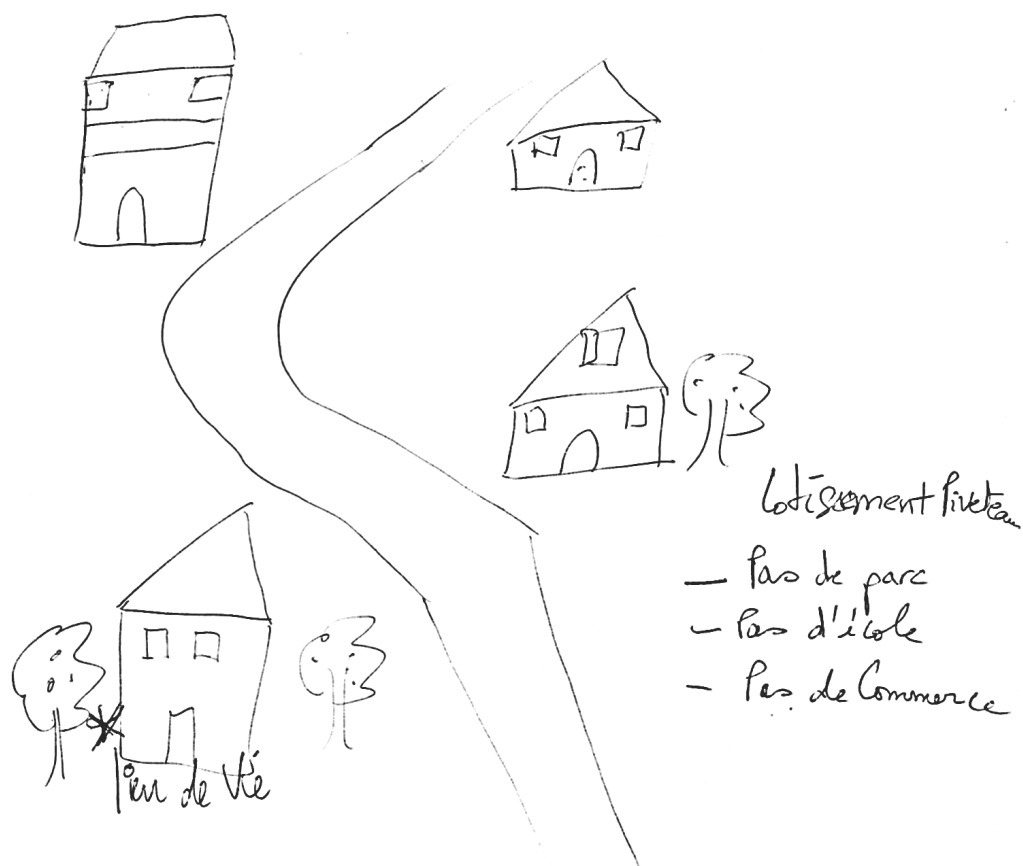 Lotissement Piveteau
— Pas de parc
— Pas d'école
— Pas de Commerce
lieu de Vie